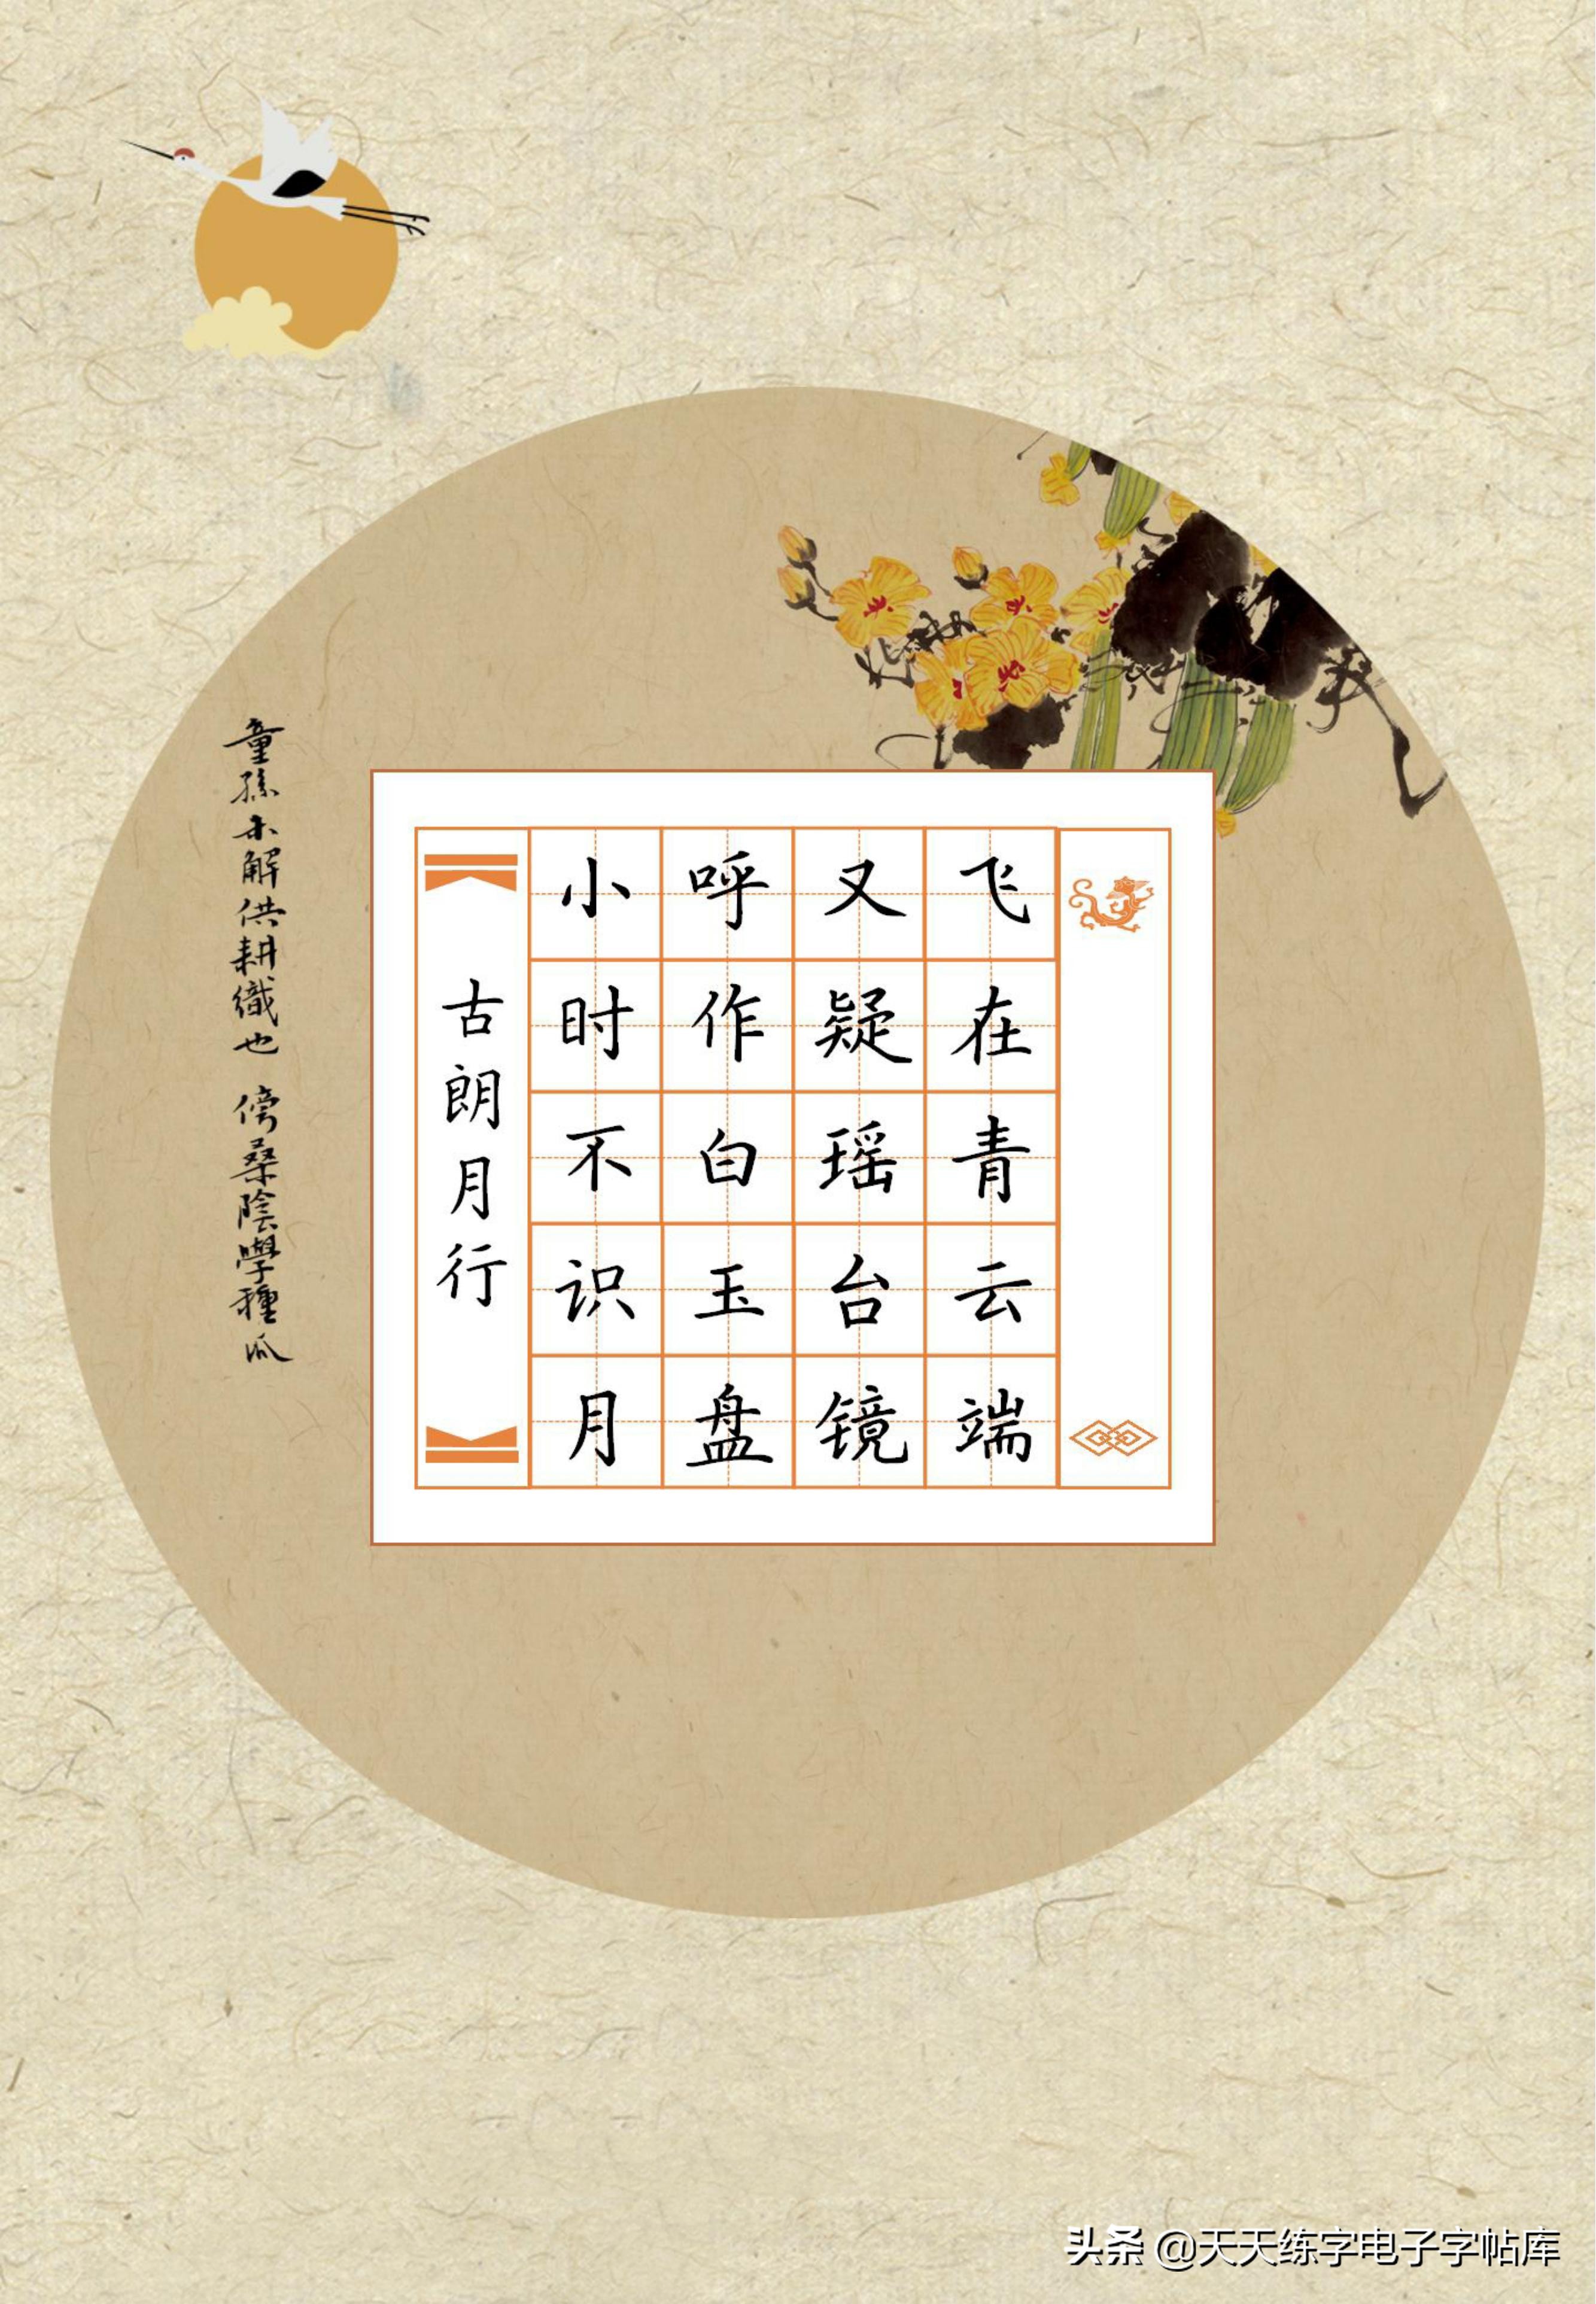 童孫未解供耕織也 傍桑陰學種瓜
古朗月行
小时不识月
呼作白玉盘
又疑瑶台镜
飞在青云端
头条 @天天练字电子字帖库